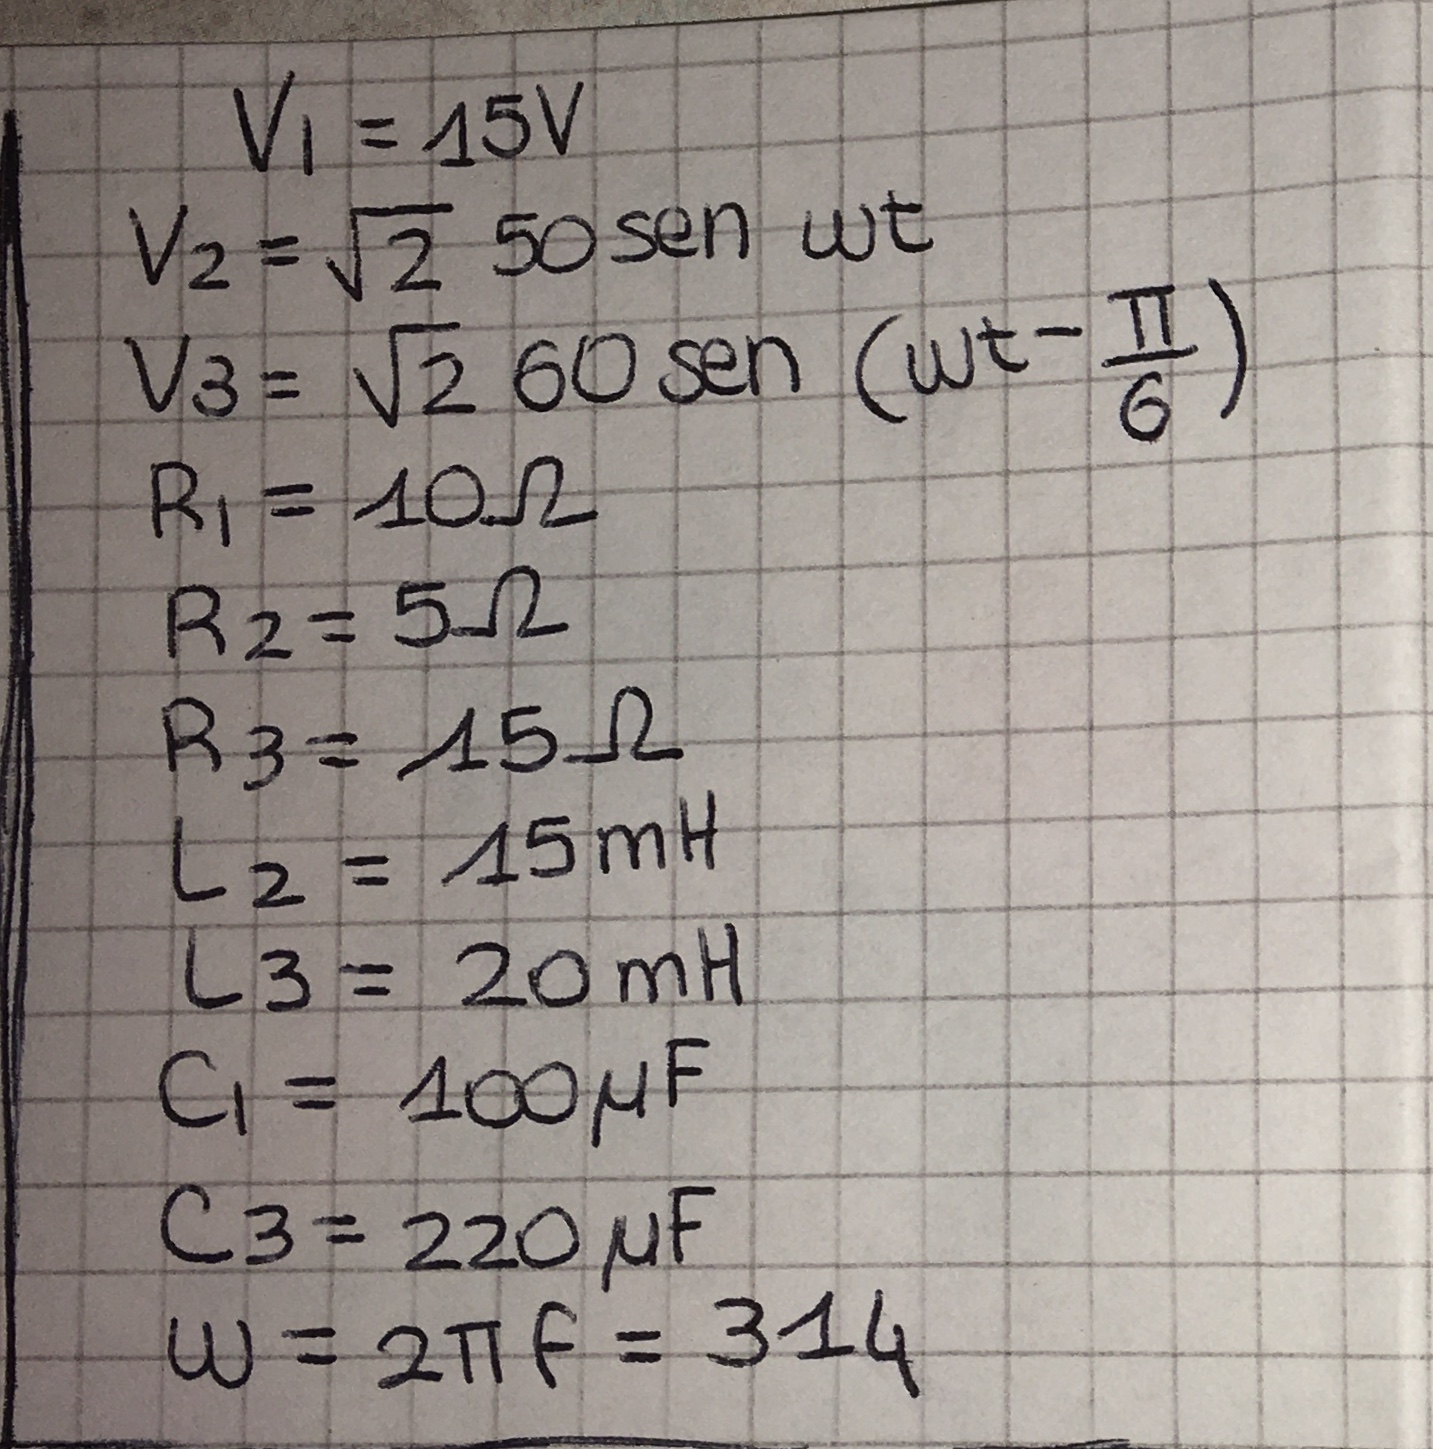 V1 = 15V
V2 = √2 50 sen ωt
V3 = √2 60 sen (ωt - π/6)
R1 = 10Ω
R2 = 5Ω
R3 = 15Ω
L2 = 15mH
L3 = 20mH
C1 = 100μF
C3 = 220μF
ω = 2πf = 314